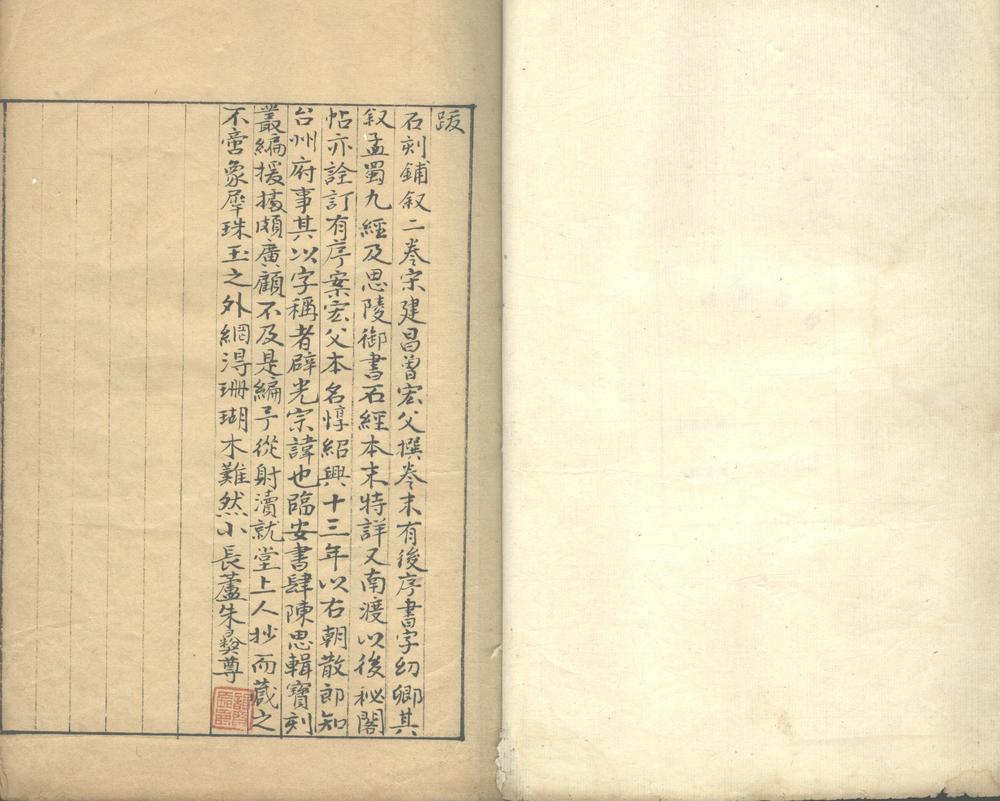 跋
石刻鋪叙二卷宋建昌曾宏父撰卷末有後序書字幼卿其
叙孟蜀九經及思陵御書石經本末特詳又南渡以後秘閣
帖亦詮訂有序案宏父本名惇紹興十三年以右朝散郎知
台州府事其以字稱者辟光宗諱也臨安書肆陳思輯寶刻
叢編援據頗廣顧不及是編予從射瀆就堂上人抄而藏之
不啻象犀珠玉之外網得珊瑚木難然小長蘆朱彝尊